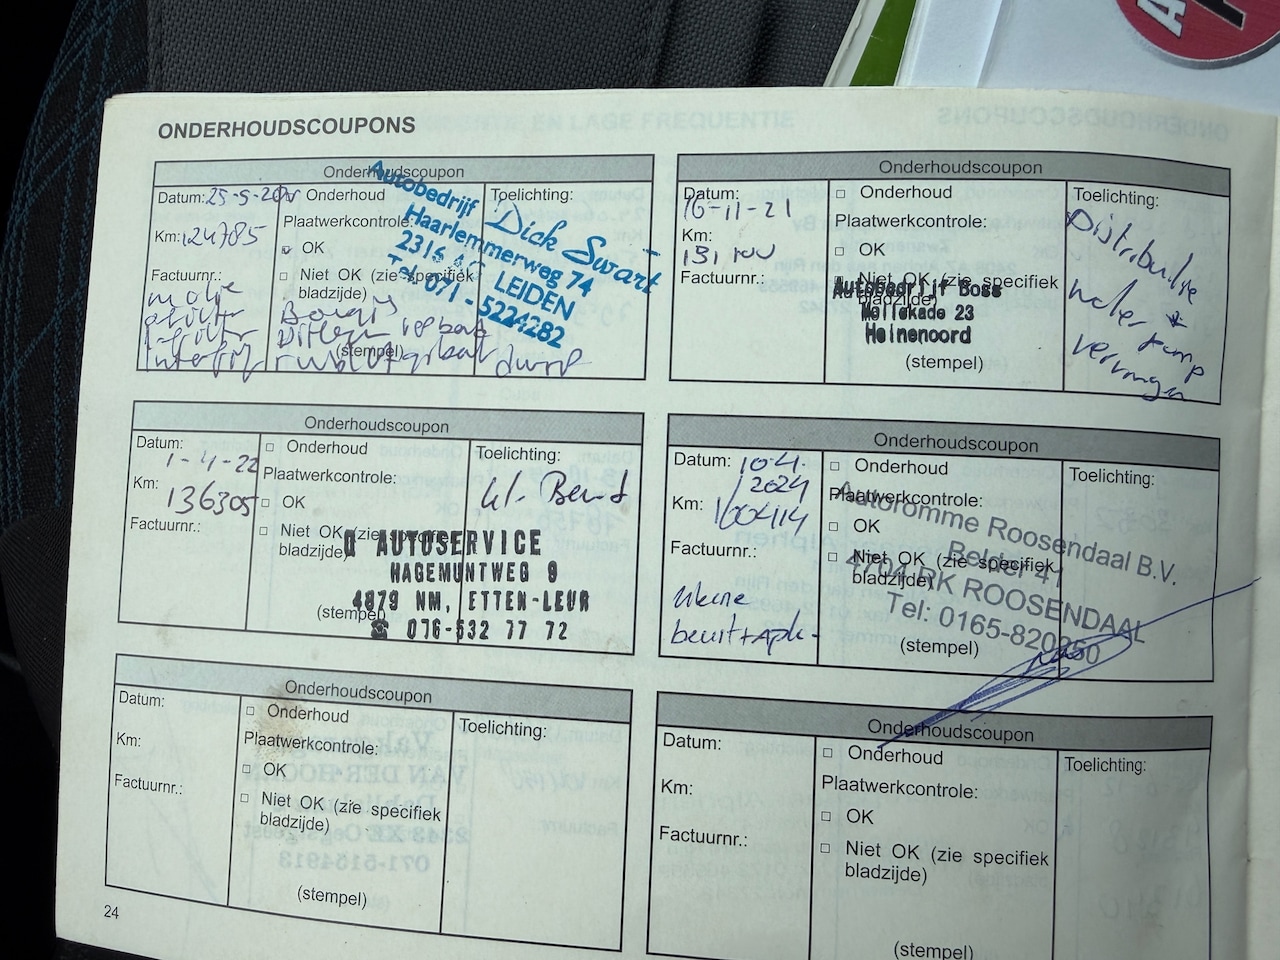 ONDERHOUDSCOUPONS
Onderhoudscoupon
Datum: 25-5-20
Km: 124785
Factuurnr.:
Onderhoud
Plaatwerkcontrole:
OK
Niet OK (zie specifiek
bladzijde)
(stempel)
Toelichting:
Autobedrijf Dick Swart
Haarlemmerweg 74
LEIDEN
Tel. 071 - 5224282
Onderhoudscoupon
Datum:
16-11-21
Km:
Factuurnr.:
Onderhoud
Plaatwerkcontrole:
OK
Niet OK (zie specifiek
bladzijde)
Autobedrijf Boss
Heinenoord
(stempel)
Toelichting:
Distributie
Onderhoudscoupon
Datum:
1-4-22
Km:
136305
Factuurnr.:
Onderhoud
Plaatwerkcontrole:
OK
Niet OK (zie specifiek
bladzijde)
(stempel)
AUTOSERVICE
4879 NM, ETTEN-LEUR
☎ 076-532 77 72
Toelichting:
Kl. Beurt
Onderhoudscoupon
Datum: 10-4-
2024
Km:
Factuurnr.:
Kleine
beurt + Apk-
Onderhoud
Plaatwerkcontrole:
OK
Niet OK (zie specifiek
bladzijde)
(stempel)
Autoromme Roosendaal B.V.
Belder 41
4704 RK ROOSENDAAL
Tel: 0165-820250
Toelichting:
Onderhoudscoupon
Datum:
Km:
Factuurnr.:
Onderhoud
Plaatwerkcontrole:
OK
Niet OK (zie specifiek
bladzijde)
(stempel)
Toelichting:
Onderhoudscoupon
Datum:
Km:
Factuurnr.:
Onderhoud
Plaatwerkcontrole:
OK
Niet OK (zie specifiek
bladzijde)
(stempel)
Toelichting:
24